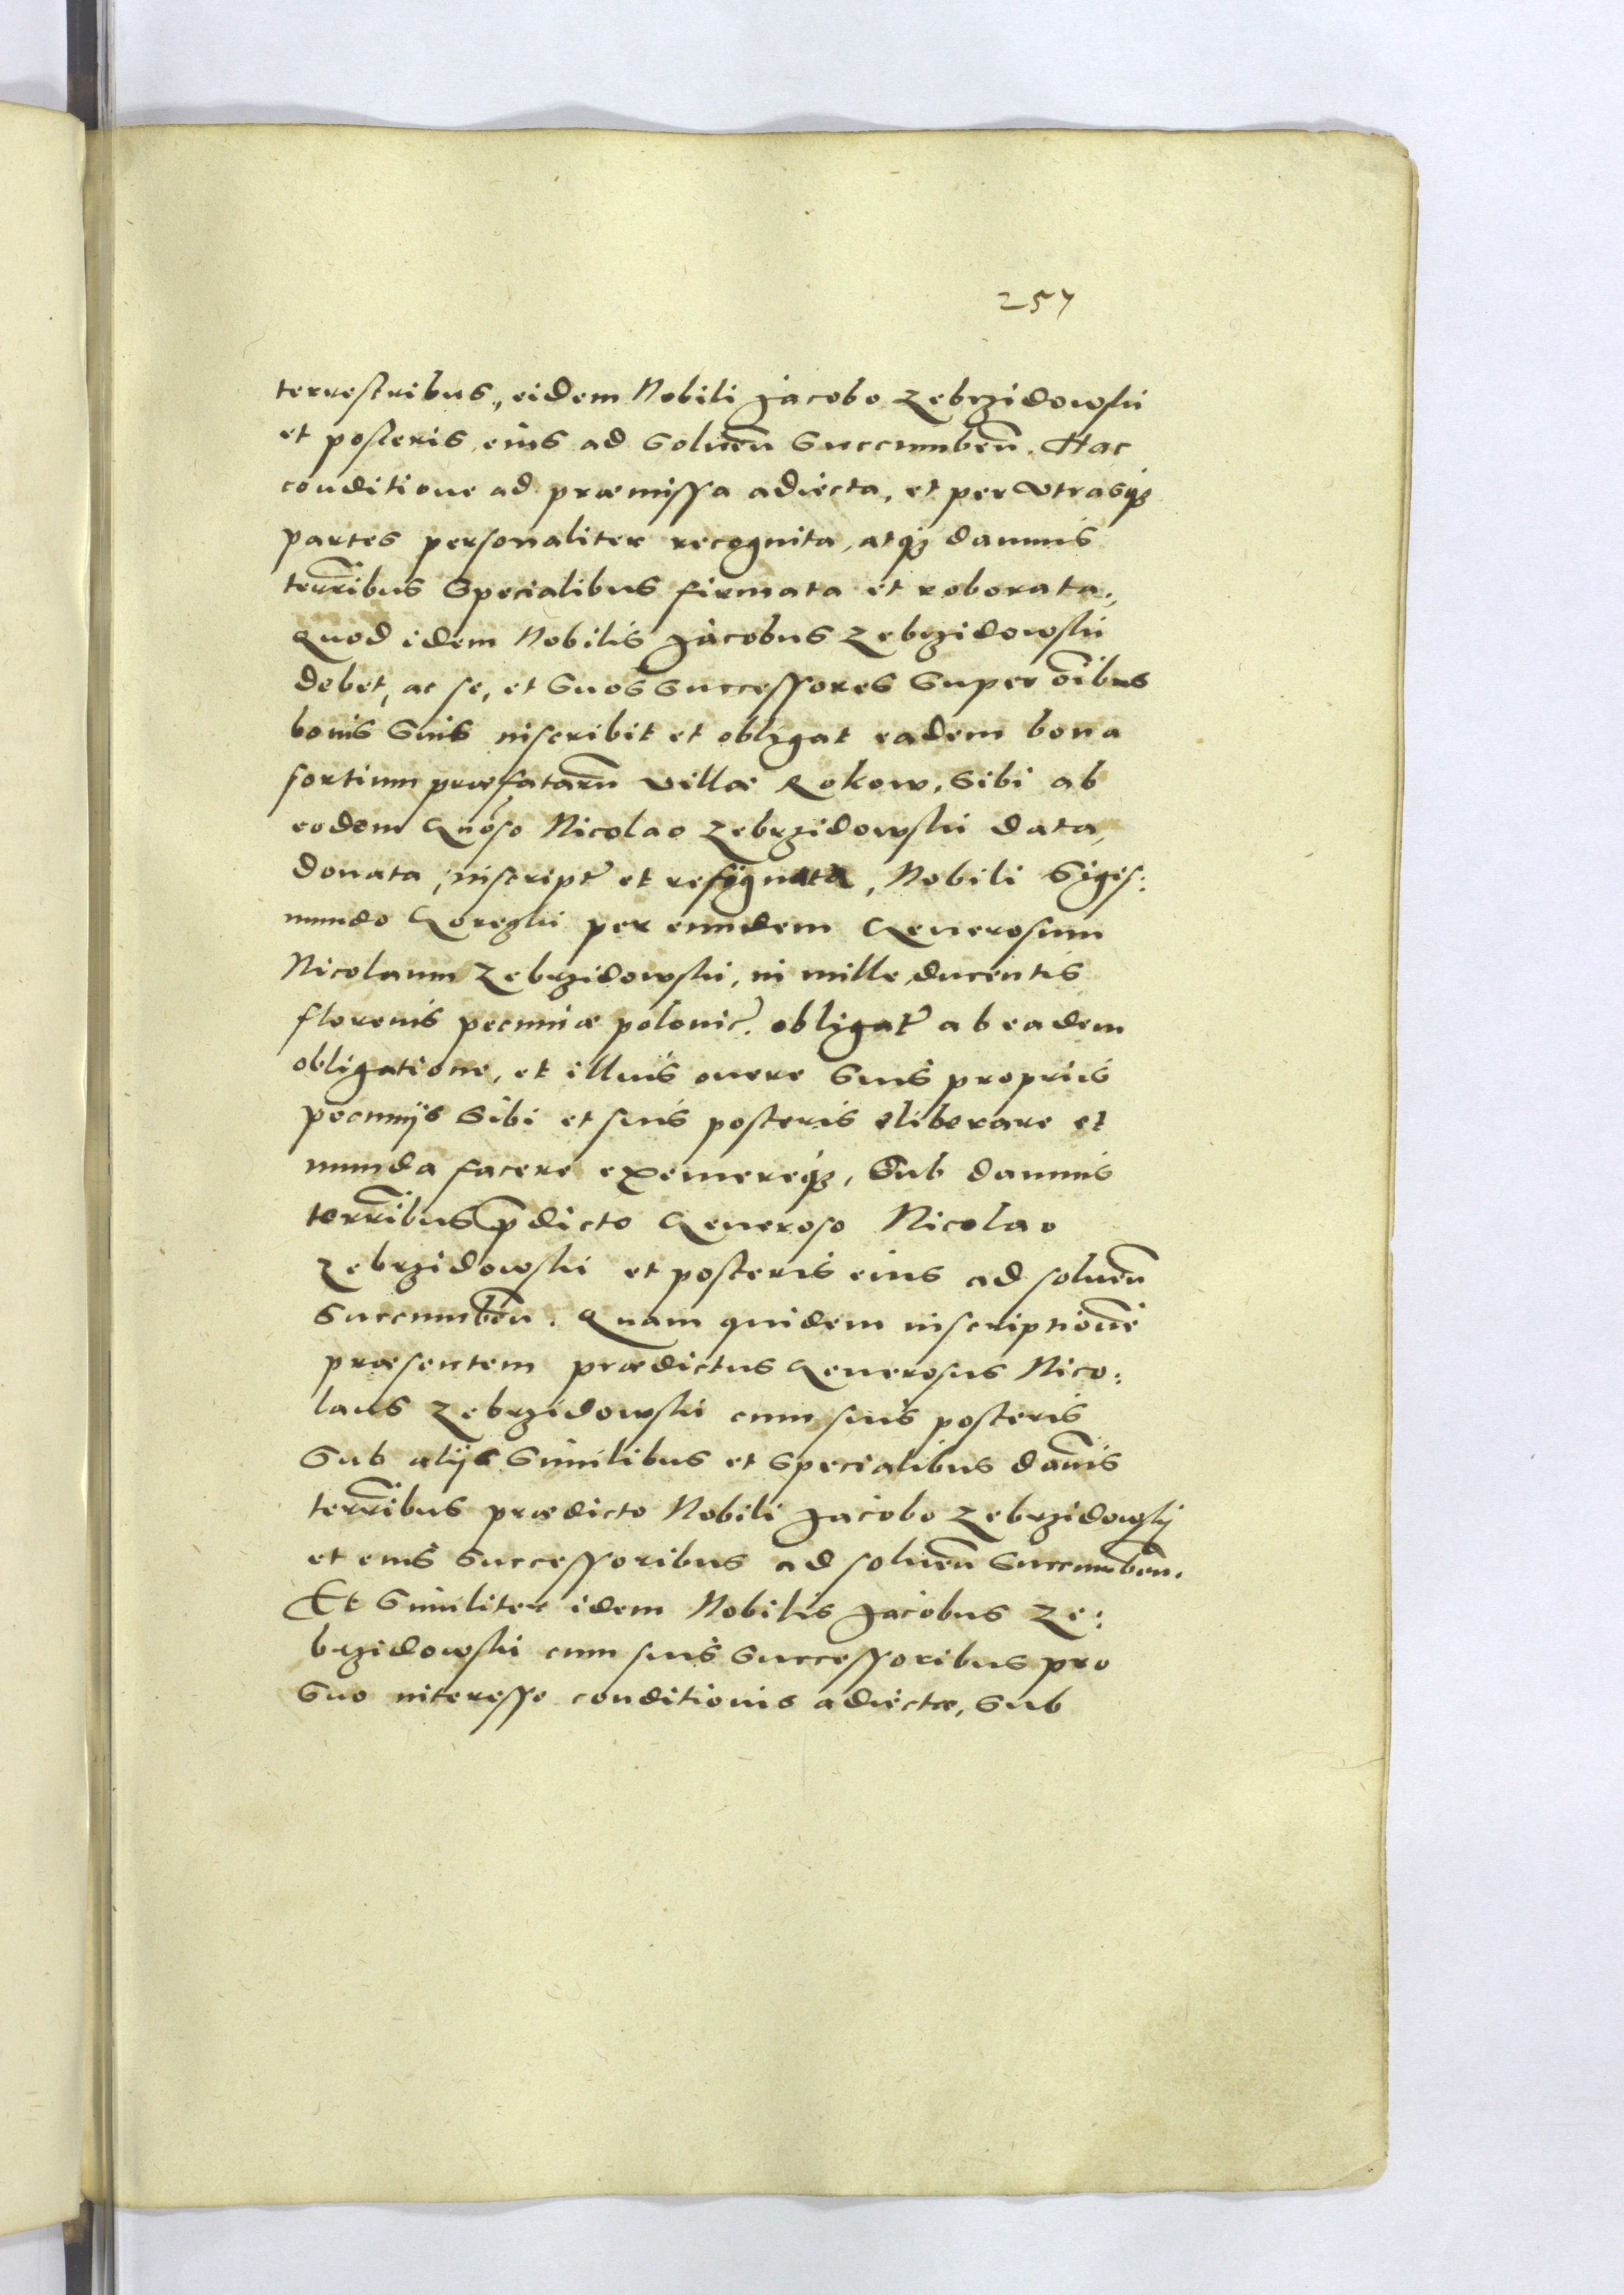 257
terrestribus, eidem Nobili Jacobo Zebrzidowski
et posteris eius ad soluen̄ succumben̄. Hac
conditione ad præmissa adiecta, et per vtrasqȝ
partes personaliter recognita, atqȝ damnis
terrībus specialibus firmata et roborata,
Quod idem Nobilis Jacobus Zebrzidowski
debet, ac se, et suos successores super oībus
bonis suis inscribit et obligat eadem bona
sortium præfatarū villæ Rokow, sibi ab
eodem Gnōso Nicolao Zebrzidowski data,
donata, inscript̄ et resignata, Nobili Sigis:
mundo Koreglii per eundem Generosum
Nicolaum Zebrzidowski, in mille ducentis
florenis pecuniæ polonic̄. obligat̄ ab eadem
obligatione, et illius onere suis proprijs
pecunijs sibi et suis posteris eliberare et
munda facere exemereqȝ, sub damnis
terrībus p̄dicto Generoso Nicolao
Zebrzidowski et posteris eius ad soluen̄
succumben̄. Quam quidem inscriptionē
præsentem prædictus Generosus Nico:
laus Zebrzidowski cum suis posteris
sub alijs similibus et specialibus dam̄is
terrībus prædicto Nobili Jacobo Zebrzidowskj
et eius successoribus ad soluen̄ succumben̄.
Et similiter idem Nobilis Jacobus Ze:
brzidowski cum suis successoribus pro
suo interesse conditionis adiectæ, sub